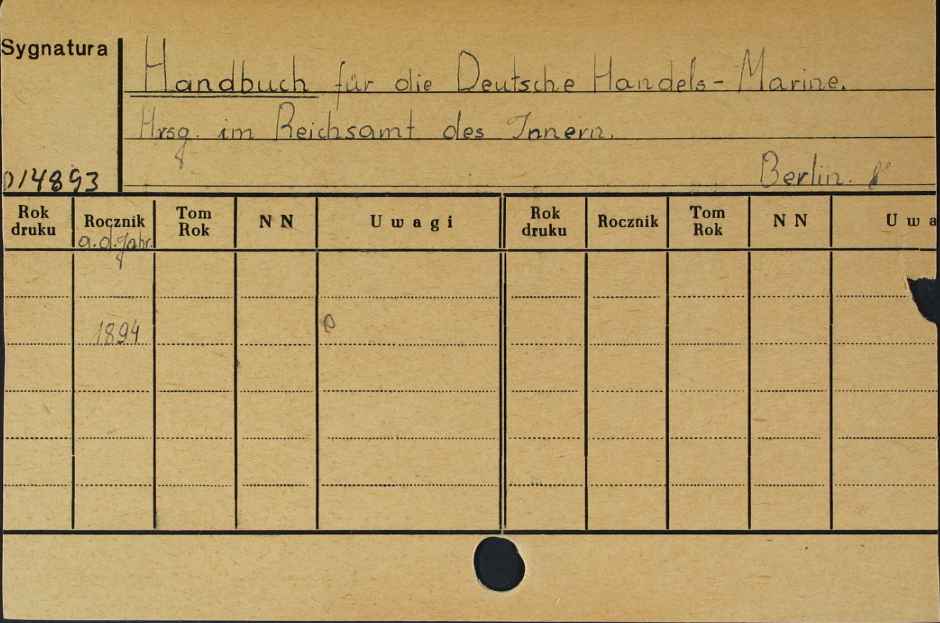 Sygnatura
Handbuch für die Deutsche Handels-Marine.
Hrsg. im Reichsamt des Innern.
14893
Berlin. 8°
Rok druku Rocznik Tom Rok NN Uwagi Rok druku Rocznik Tom Rok NN Uwa
a.d. Jahr.
1894